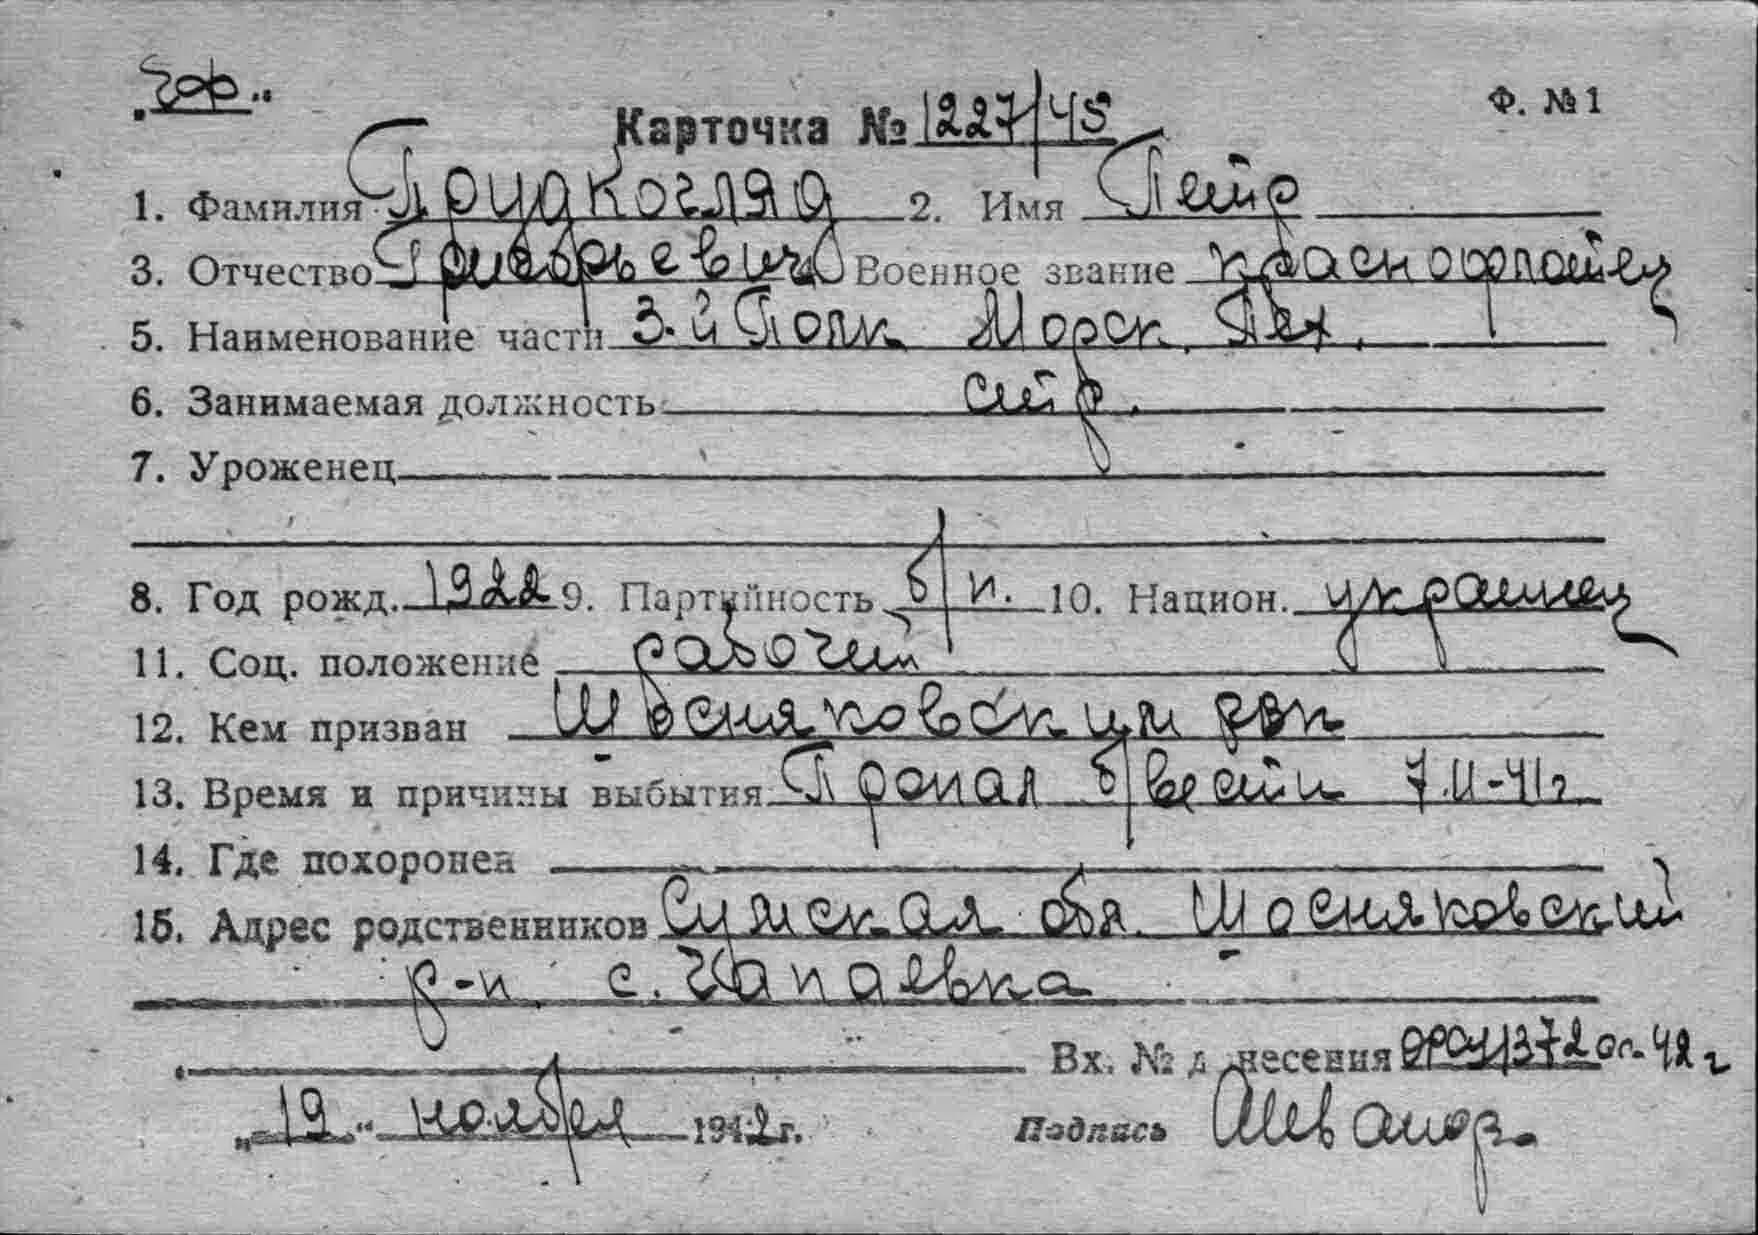 „чф“
Ф. №1
Карточка № 1227/45
1. Фамилия Прудкогляд 2. Имя Петр
3. Отчество Григорьевич Военное звание краснофлотец
5. Наименование части 3-й Полк Морск. Пех.
6. Занимаемая должность стр.
7. Уроженец
8. Год рожд. 1922 9. Партийность б/п. 10. Национ. украинец
11. Соц. положение рабочий
12. Кем призван Шосняковским рвк
13. Время и причины выбытия Пропал б/вести 7.11-41г
14. Где похоронен
15. Адрес родственников Сумская обл. Шосняковский
р-н. с. Чапаевка
Вх. № донесения 372 ос-42г
„19“ ноября 1942г. Подпись